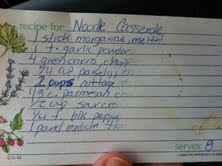 recipe for: Noodle Casserole
1 stick margarine, melted
1 t. garlic powder
4 green onions, chopped
2 cups cottage
c. parmesan
1/2 cup sour cream
t. blk pepper
1 pound medium
serves: 8